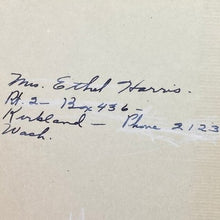 Mrs. Ethel Harris.
Rt. 2 - Box 436 -
Kirkland - Phone 2123
Wash.